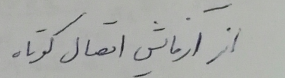 از آزمایش اتصال کوتاه